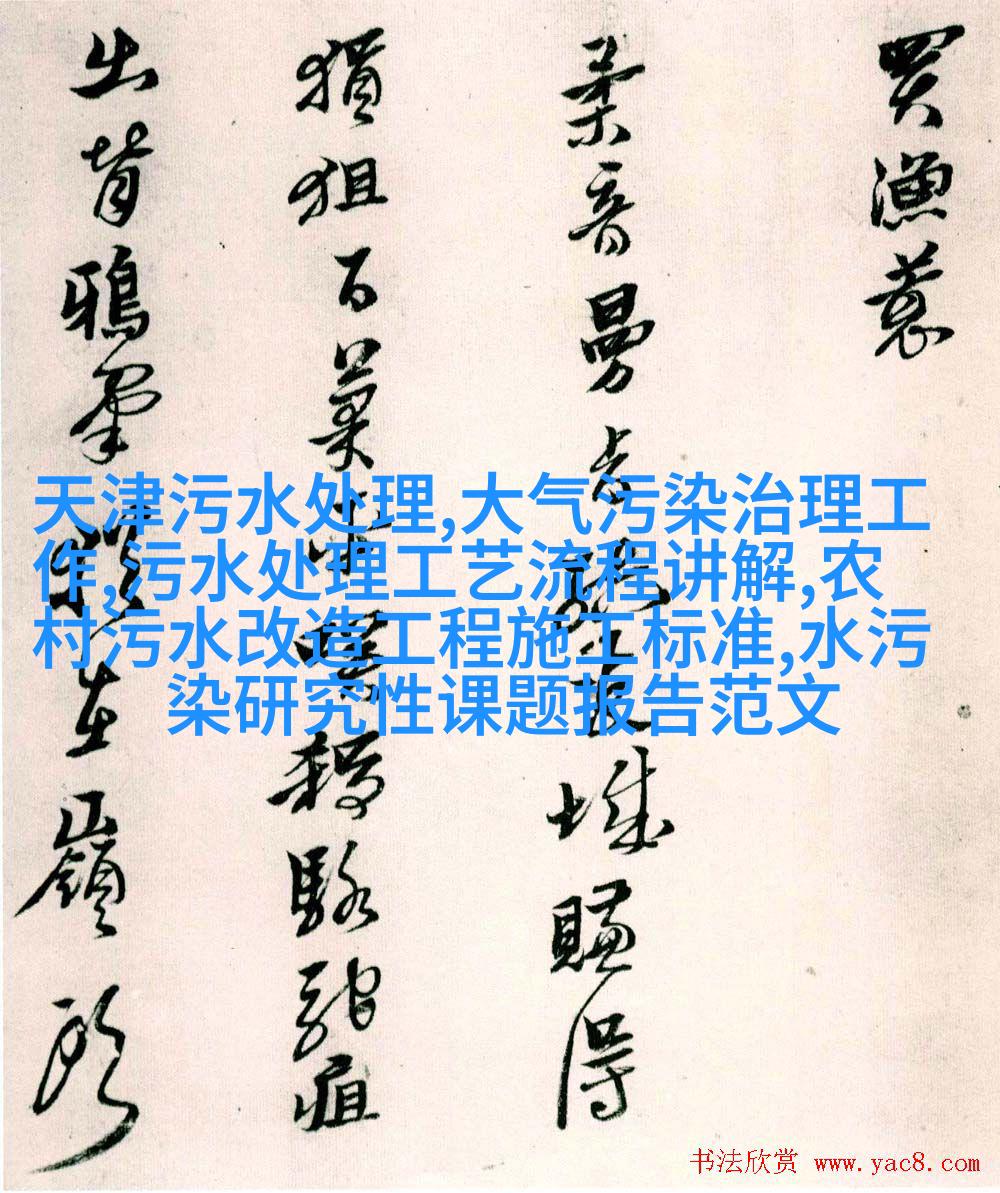 買漁蓑
柔音曼 城賺得
狙百 駱駝疽
出背鴉 在嶺
天津污水处理,大气污染治理工
作,污水处理工艺流程讲解,农
村污水改造工程施工标准,水污
染研究性课题报告范文
书法欣赏 www.yac8.com